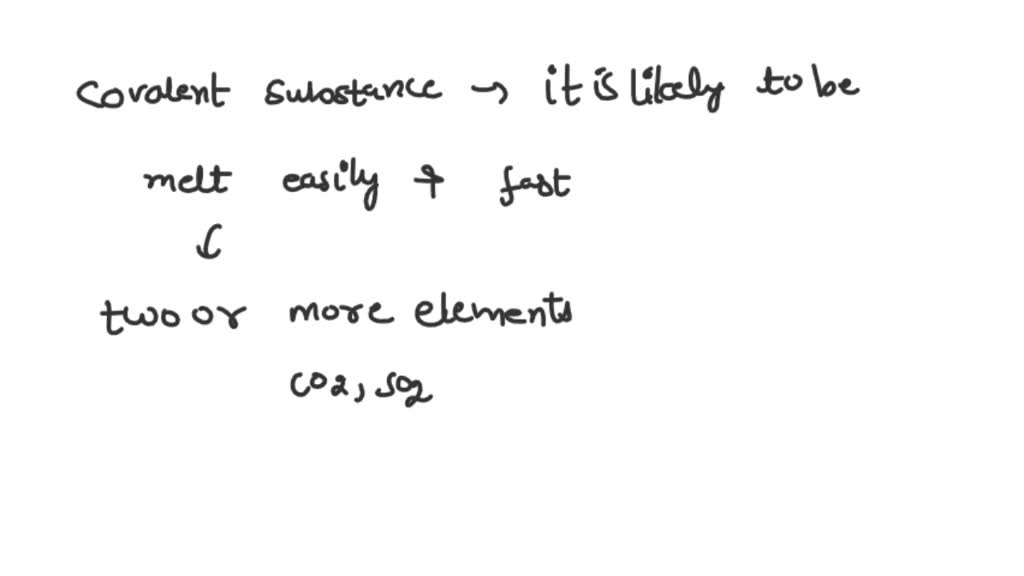 covalent substance → it is likely to be
melt easily & fast
↓
two or more elements
CO2, SO2